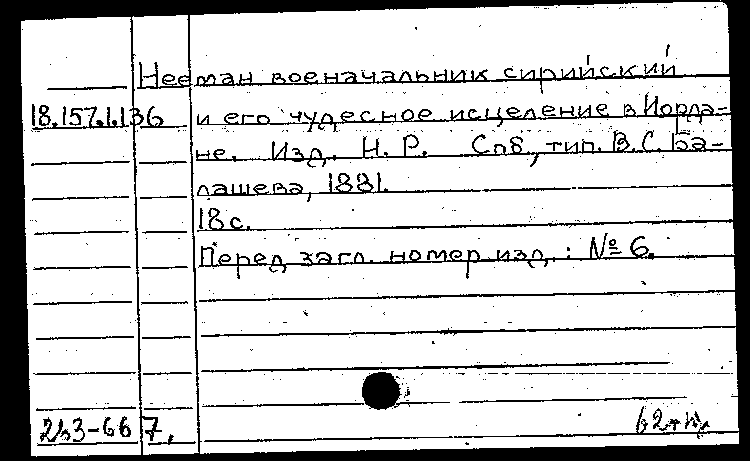 Нееман военачальник сирийский
18.157.1.136 и его чудесное исцеление в Иорда-
не. Изд. Н. Р. Спб., тип. В. С. Ба-
лашева, 1881.
18 с.
Перед загл. номер изд.: № 6.
253-66 7.